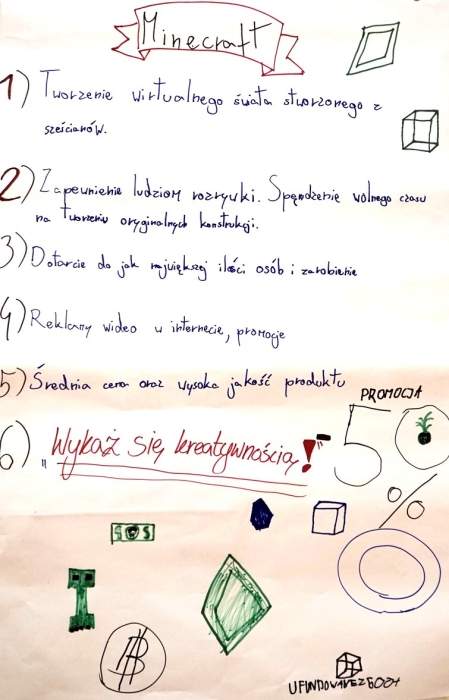 Minecraft
1) Tworzenie wirtualnego świata stworzonego z
sześcianów.
2) Zapewnienie ludziom rozrywki. Spędzenie wolnego czasu
na tworzeniu oryginalnych konstrukcji.
3) Dotarcie do jak największej ilości osób i zarobienie
4) Reklamy wideo w internecie, promocje
5) Średnia cena oraz wysoka jakość produktu
PROMOCJA
6) "Wykaż się kreatywnością!"
-50
%
$0$
UFUNDOWANE Z